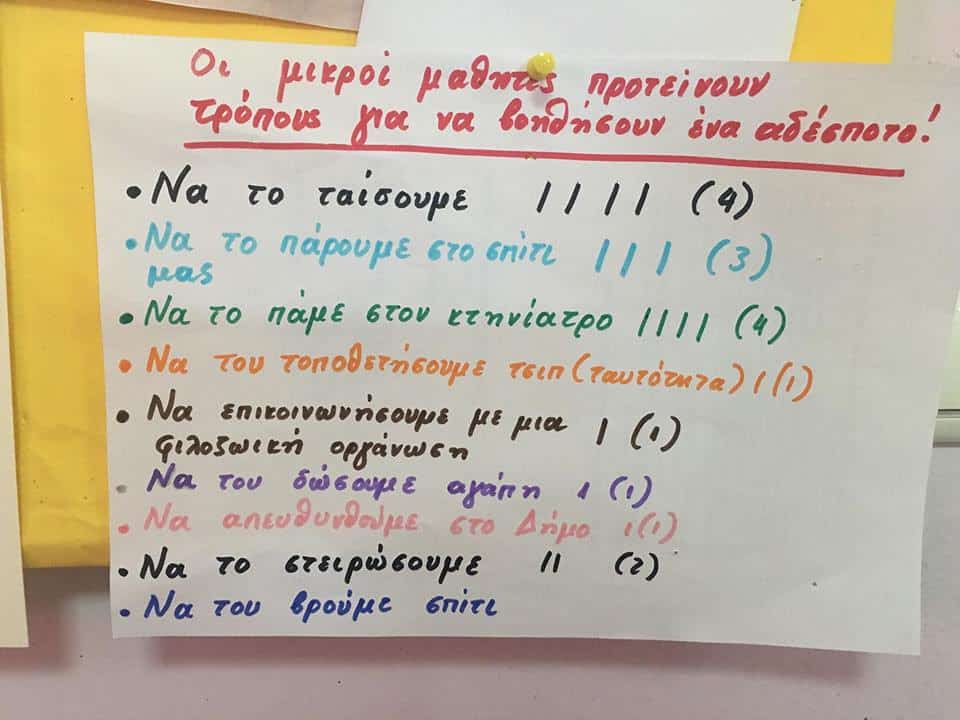 Οι μικροί μαθητές προτείνουν
τρόπους για να βοηθήσουν ένα αδέσποτο!
• Να το ταίσουμε | | | | (4)
• Να το πάρουμε στο σπίτι | | | (3)
μας
• Να το πάμε στον κτηνίατρο | | | | (4)
• Να του τοποθετήσουμε τσιπ (ταυτότητα) | (1)
• Να επικοινωνήσουμε με μια | (1)
φιλοζωική οργάνωση
• Να του δώσουμε αγάπη | (1)
• Να απευθυνθούμε στο Δήμο | (1)
• Να το στειρώσουμε | | (2)
• Να του βρούμε σπίτι